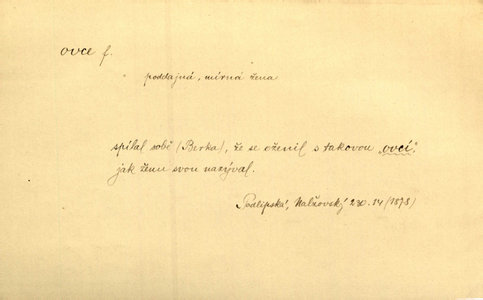 ovce f.
poddajná, mírná žena
spílal sobě (Berka), že se oženil s takovou „ovcí“,
jak ženu svou nazýval.
Podlipská, Nalžovský 2 14 (1878)